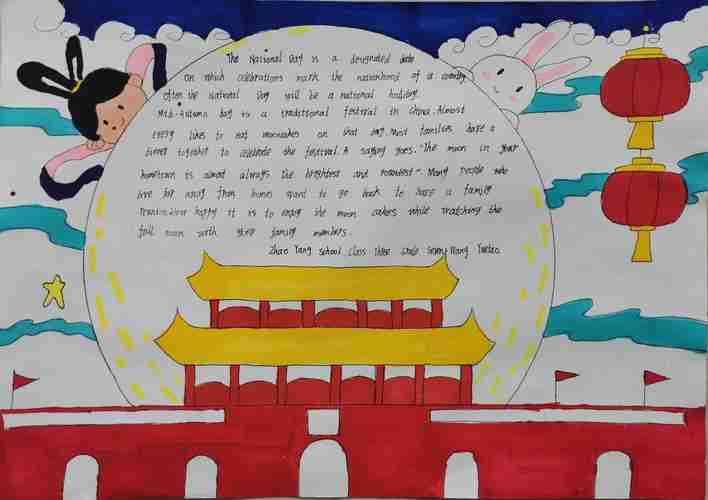 The National Day is a designated date
on which celebrations mark the nationhood of a country
often the National Day will be a national holiday.
Mid-Autumn Day is a traditional festival in China. Almost
every likes to eat mooncakes on that day. Most families have a
dinner together to celebrate the festival. A saying goes. "The moon in your
hometown is almost always the brightest and roundest". Many people who
live far away from homes want to go back to have a family
happy it is to enjoy the moon cakes while watching the
full moon with your family members.
Zhao Yang School Class Three Grade Seven Wang